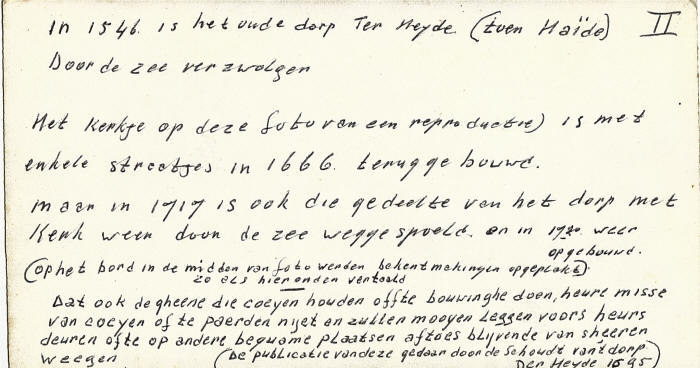 In 1546. is het oude dorp Ter Heyde. (toen Haïde) II
Door de zee verzwolgen
Het kerkje op deze foto van een reproductie) is met
enkele straatjes in 1666. terug gebouwd.
maar in 1717 is ook die gedeelte van het dorp met
Kerk weer door de zee weggespoeld. en in weer
opgebouwd.
(op het bord in de midden van foto werden bekentmakingen opgeplakt)
zo als hier onden vertaald
Dat ook de gheene die coeyen houden offte bouwinghe doen, heure misse
van coeyen of te paerden nijet en zullen mooyen Leggen voors heurs
deuren ofte op andere bequame plaetsen aftoes blijvende van sheeren
weegen (De publicatie van deze gedaar door de Schoudt van 't dorp)
Der Heyde 1595